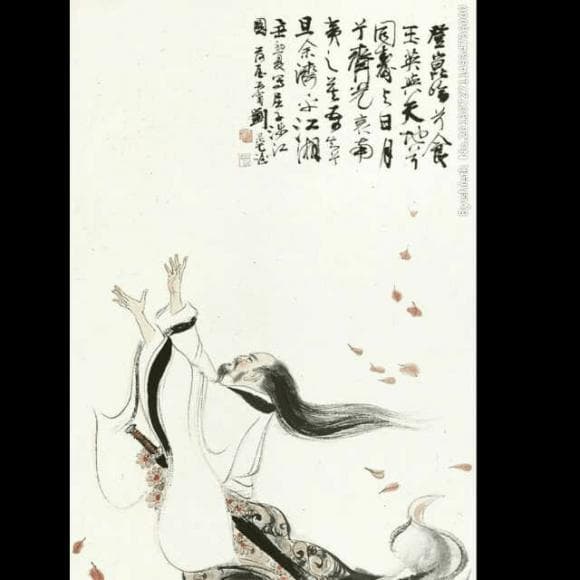 登崑崙兮食
玉英與天地兮
同壽与日月
兮齊光哀南
夷之莫吾知兮
旦余濟乎江湘
夏写屈子涉江
圖